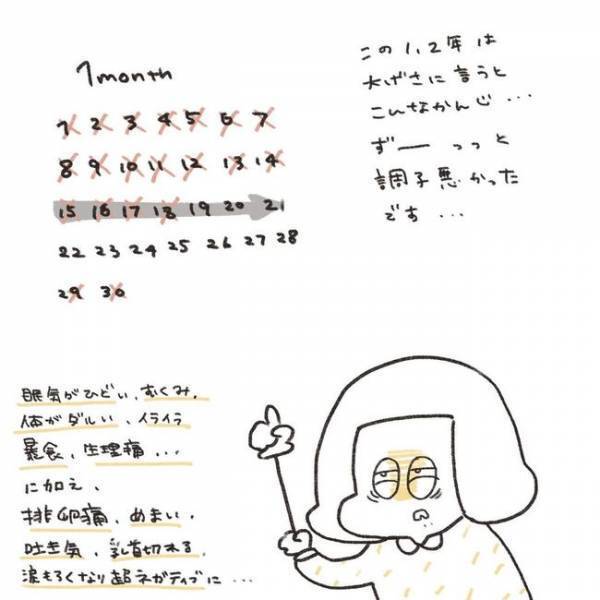 1month
1 2 3 4 5 6 7
8 9 10 11 12 13 14
15 16 17 18 19 20 21
22 23 24 25 26 27 28
29 30
この1、2年は
大げさに言うと
こんなかんじ...
ずーーっっと
調子悪かった
です...
眠気がひどい、むくみ、
体がダルい、イライラ
暴食、生理痛...
に加え、
排卵痛、めまい、
吐き気、乳首切れる、
涙もろくなり超ネガティブに...